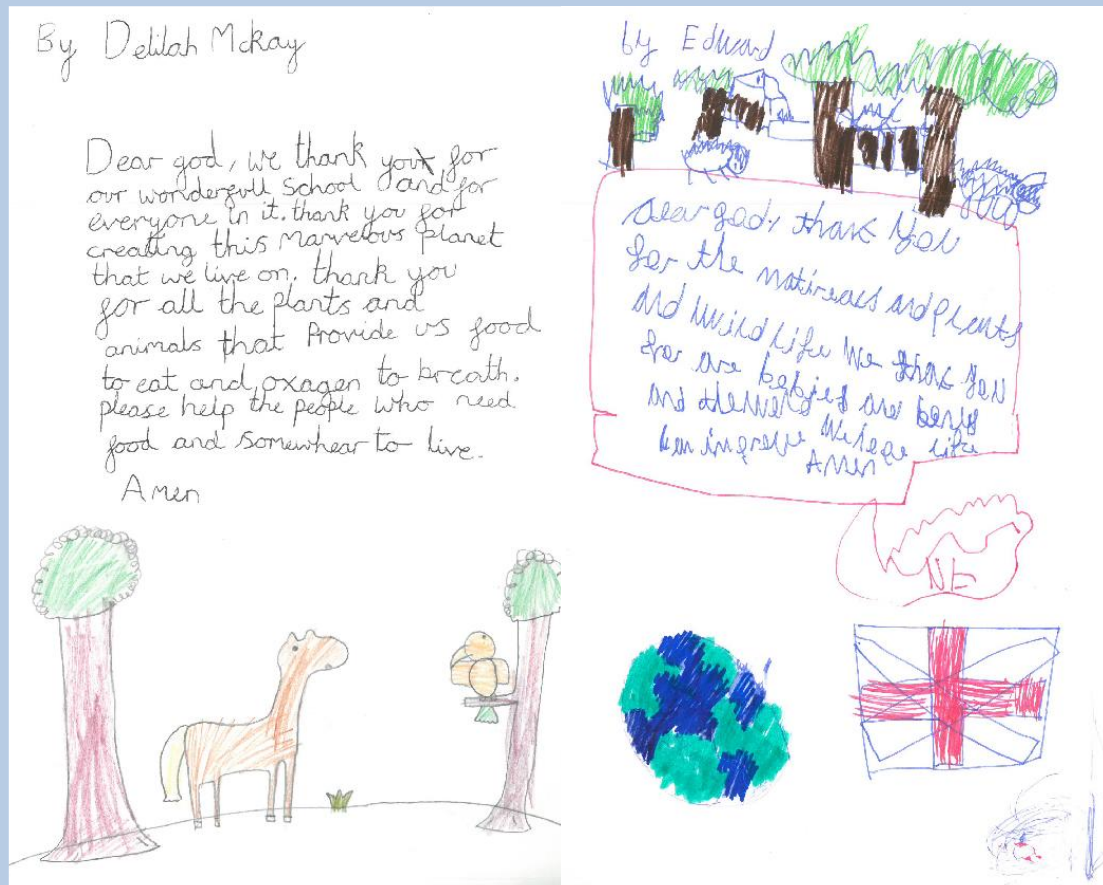 By Delilah Mckay
Dear god, we thank you for
our wonderfull School and for
everyone in it. thank you for
creatting this marvelous planet
that we live on. thank you
for all the plants and
animals that Provide us food
to eat and oxagen to breath.
please help the people who need
food and somewhear to live.
Amen
by Edward
Dear god, thank you
for the and plants
and life We thank you
for are babies are
and
life
Amen